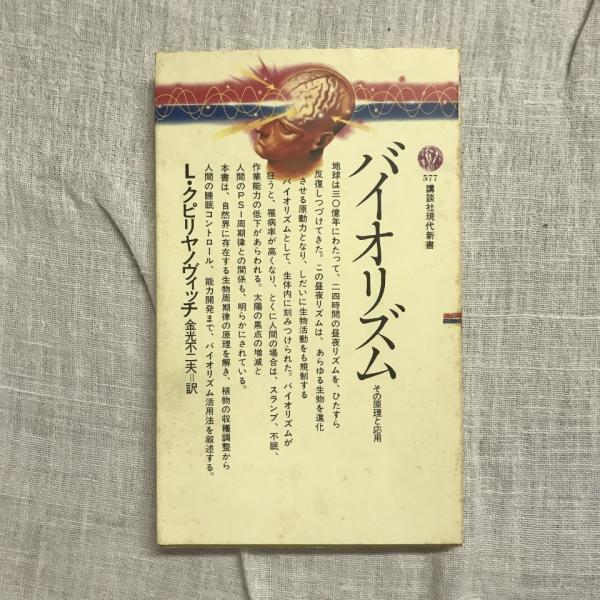 577
講談社現代新書
バイオリズム
その原理と応用
地球は三〇億年にわたって、二四時間の昼夜リズムを、ひたすら
反復しつづけてきた。この昼夜リズムは、あらゆる生物を進化
させる原動力となり、しだいに生物活動をも規制する
バイオリズムとして、生体内に刻みつけられた。バイオリズムが
狂うと、罹病率が高くなり、とくに人間の場合は、スランプ、不眠、
作業能力の低下があらわれる。太陽の黒点の増減と
人間のPSI周期律との関係も、明らかにされている。
本書は、自然界に存在する生物周期律の原理を解き、植物の収穫調整から
人間の睡眠コントロール、能力開発まで、バイオリズム活用法を叙述する。
L・クピリヤノヴィッチ 金光不二夫＝訳